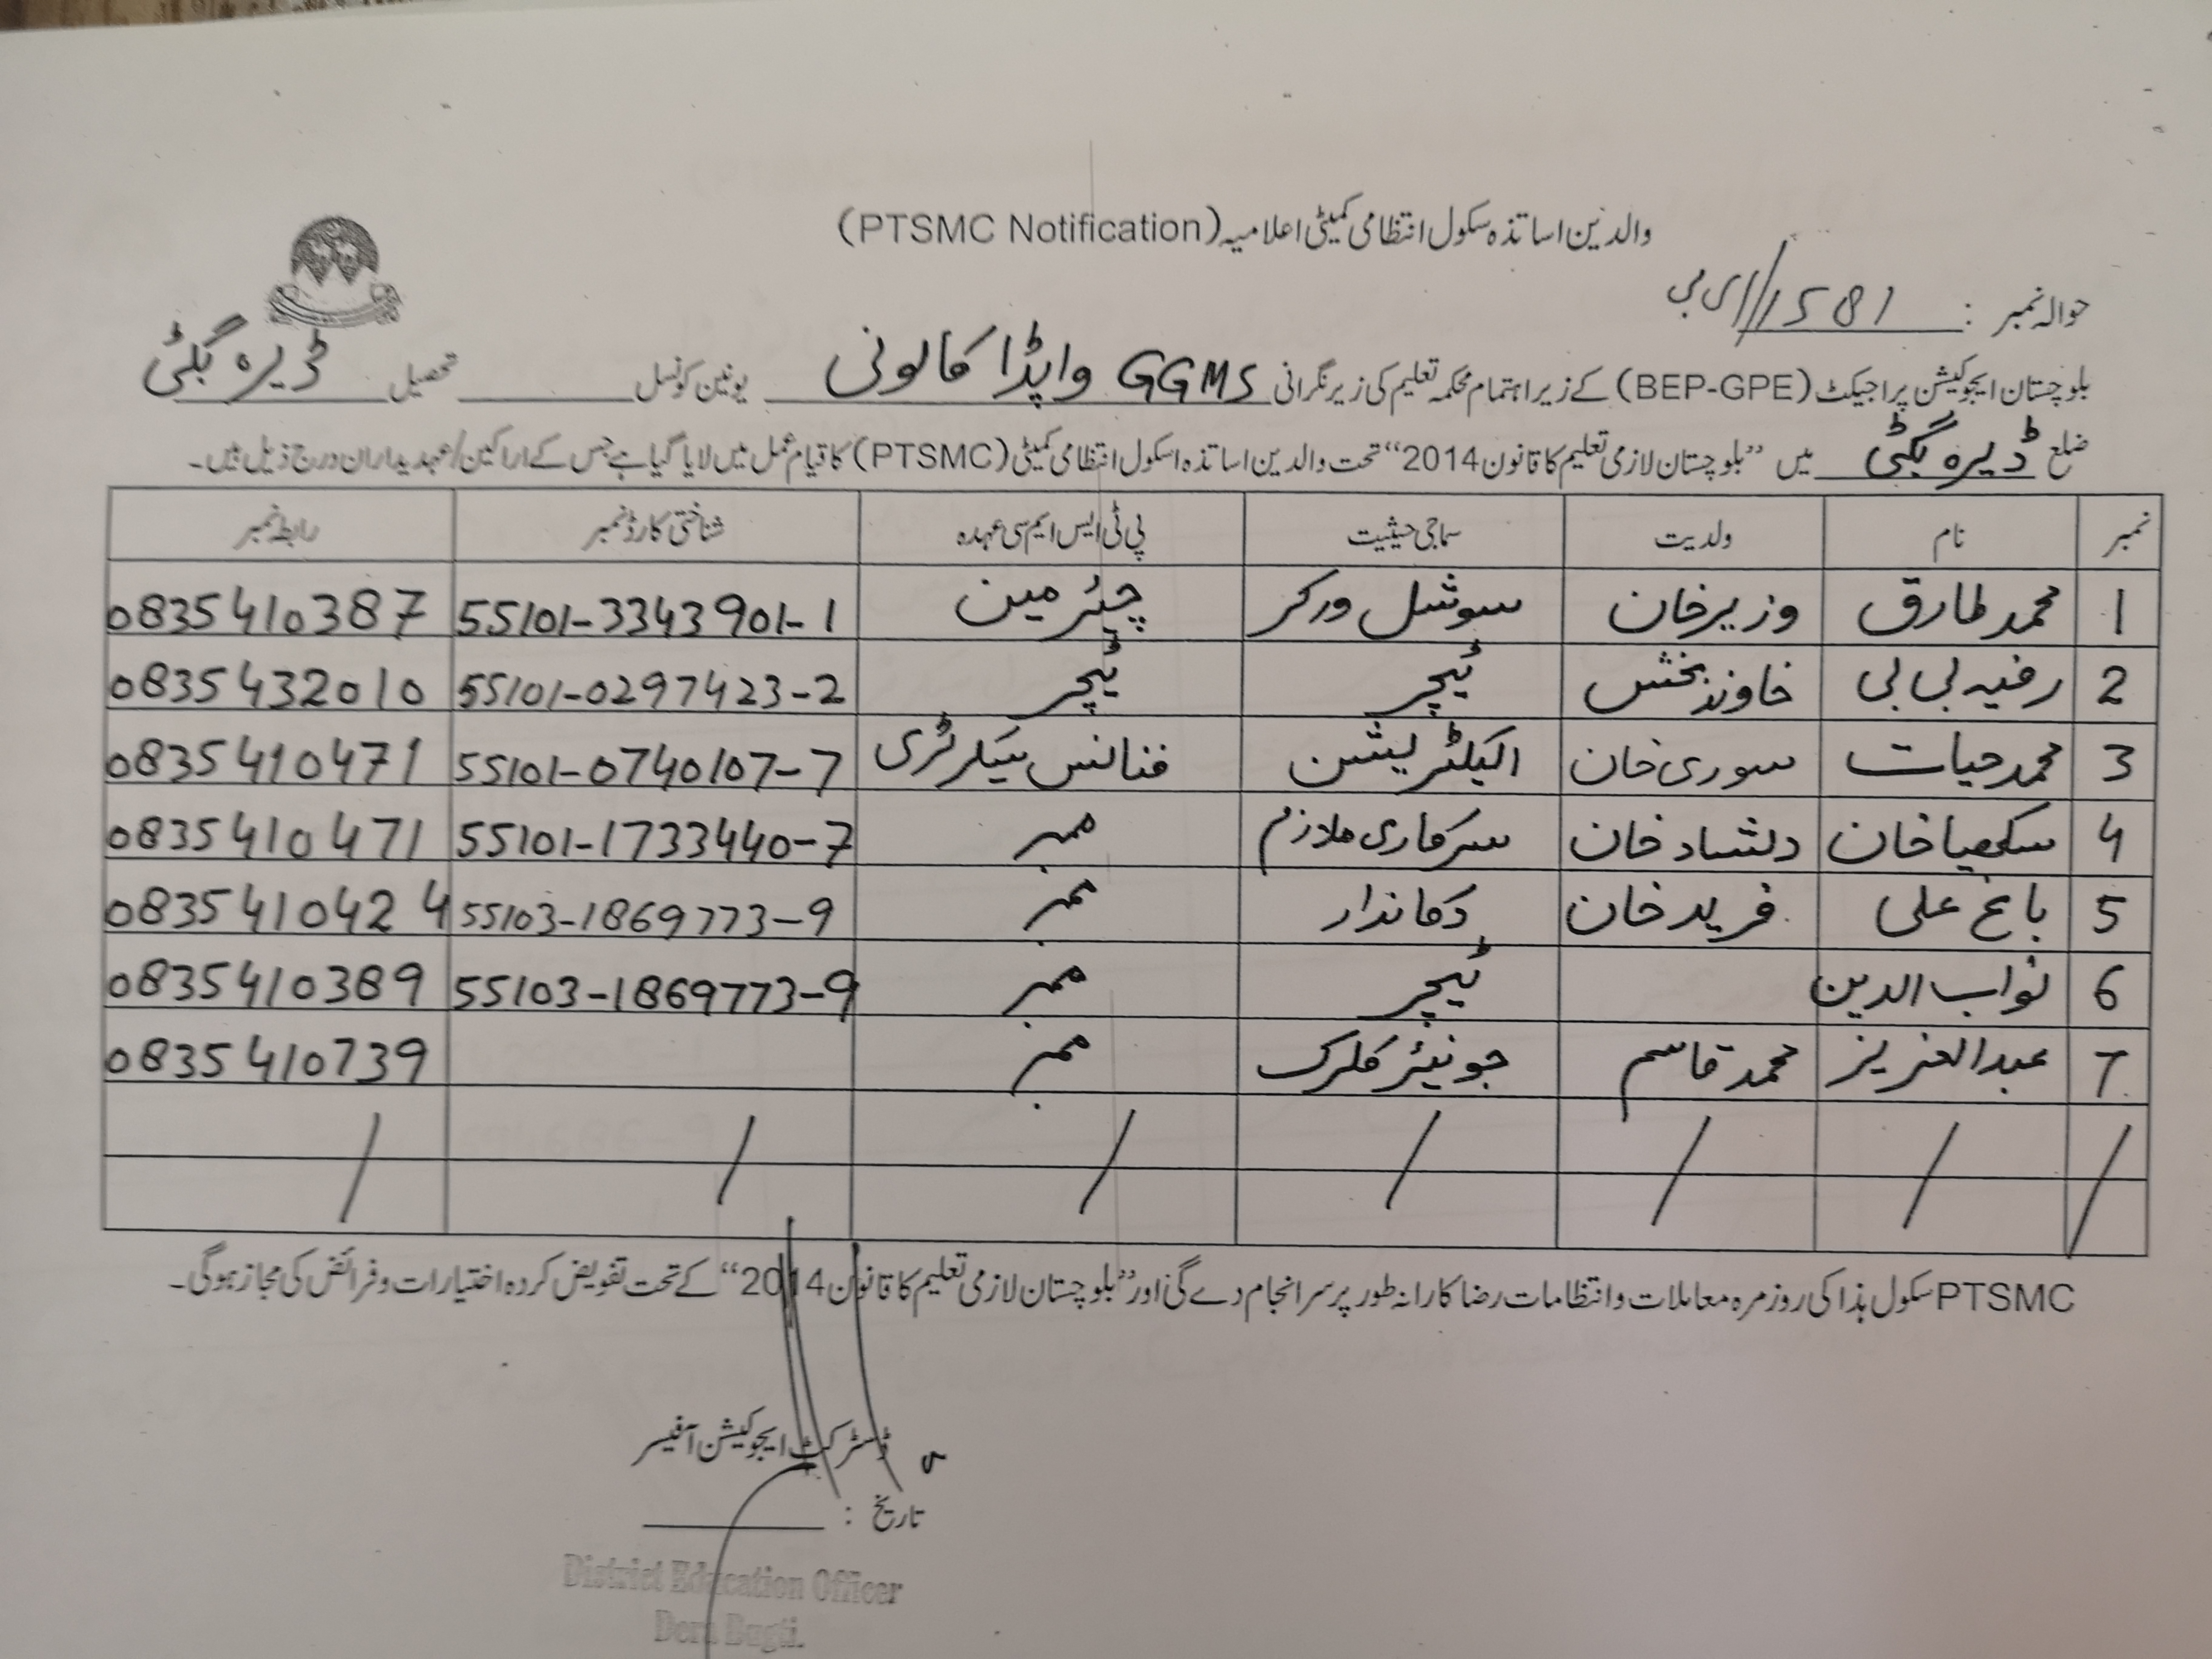 والدین اساتذہ سکول انتظامی کمیٹی اعلامیہ (PTSMC Notification)
حوالہ نمبر : 1581
بلوچستان ایجوکیشن پراجیکٹ (BEP-GPE) کے زیر اہتمام محکمہ تعلیم کی زیر نگرانی GGMS واپڈا کالونی یونین کونسل ______ تحصیل ڈیرہ بگٹی
ضلع ڈیرہ بگٹی میں ”بلوچستان لازمی تعلیم کا قانون 2014“ تحت والدین اساتذہ اسکول انتظامی کمیٹی (PTSMC) کا قیام عمل میں لایا گیا ہے جس کے اراکین/عہدیداران درج ذیل ہیں۔
نمبر نام ولدیت سماجی حیثیت پی ٹی ایس ایم سی عہدہ شناختی کارڈ نمبر رابطہ نمبر
1 محمد طارق وزیر خان سوشل ورکر چیئرمین 55101-3343901-1 0835410387
2 رفیہ بی بی خاوند بخش ٹیچر ٹیچر 55101-0297423-2 0835432010
3 محمد حیات سوری خان الیکٹریشن فنانس سیکرٹری 55101-0740107-7 0835410471
4 سکھیا خان دلشاد خان سرکاری ملازم ممبر 55101-1733440-7 0835410471
5 باغ علی فرید خان دکاندار ممبر 55103-1869773-9 0835410424
6 نواب الدین ٹیچر ممبر 55103-1869773-9 0835410389
7 عبدالعزیز محمد قاسم جونیئر کلرک ممبر 0835410739
PTSMC سکول ہذا کی روزمرہ معاملات و انتظامات رضاکارانہ طور پر سرانجام دے گی اور ”بلوچستان لازمی تعلیم کا قانون 2014“ کے تحت تفویض کردہ اختیارات و فرائض کی مجاز ہوگی۔
ڈسٹرکٹ ایجوکیشن آفیسر
تاریخ : ______
District Education Officer
Dera Bugti.